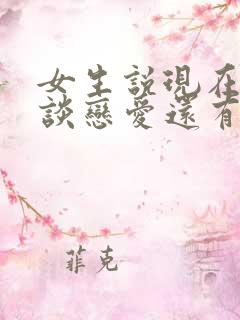 女生説現在
談戀愛還有
菲克